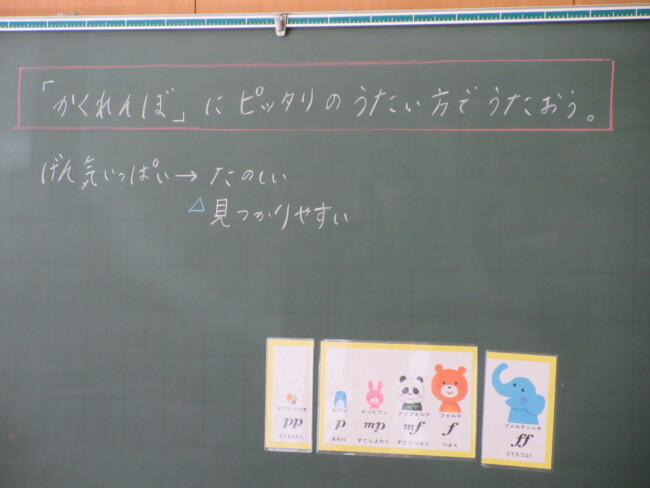 「かくれんぼ」にピッタリのうたい方でうたおう。
げん気いっぱい→たのしい
△見つかりやすい
ピアニッシモ ピアノ メゾピアノ メゾフォルテ フォルテ フォルテッシモ
pp p mp mf f ff
とてもよわく よわく すこしよわく すこしつよく つよく とてもつよく